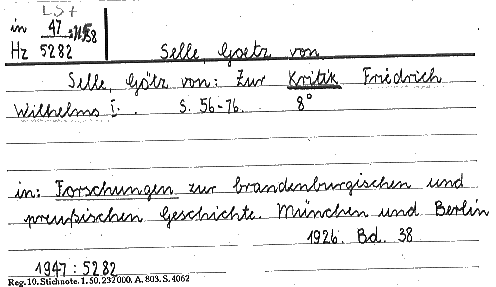 LS+
in 47
Hz 5282
Selle, Goetz von
Selle, Götz von: Zur Kritik Friedrich
Wilhelms I. S. 56-76. 8°
in: Forschungen zur brandenburgischen und
preußischen Geschichte. München und Berlin
1926. Bd. 38
1947: 5282
Reg. 10. Stichnote. 1. 50. 232000. A. 803. S. 4062